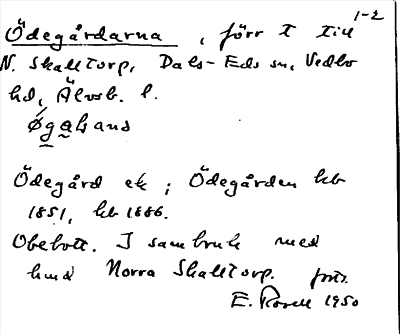 1-2
Ödegårdarna, förr t till
N. Skalltorp, Dals-Eds sn, Vedbo
hd, Älvsb. l.
Øgaḷsana
Ödegård ek; Ödegården kb
1851, kb 1886.
Obebott. I sambruk med
hmd Norra Skalltorp. forts.
E. Rosell 1950